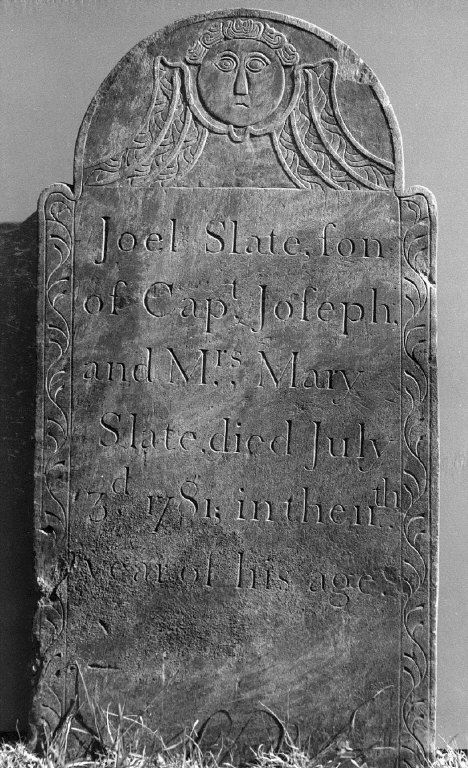 Joel Slate, ſon
of Capᵗ. Joſeph,
and Mʳˢ. Mary
Slate, died July
3ᵈ. 1781; in the 11ᵗʰ.
year of his age.